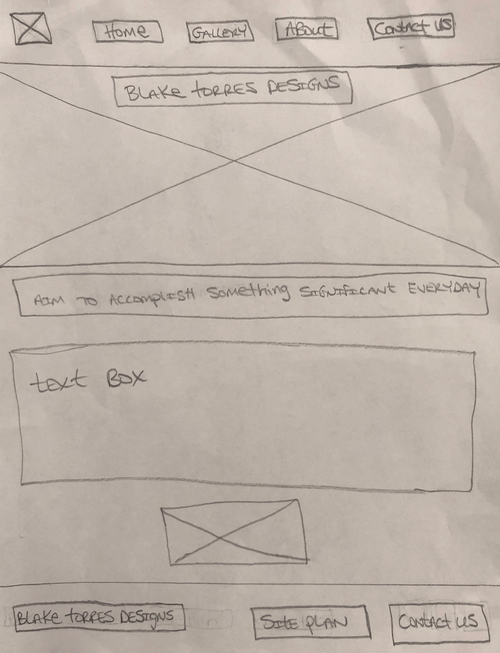 Home
GALLERY
About
Contact US
BLAKE TORRES DESIGNS
AIM TO ACCOMPLISH SOMEthing SIGNIFICANT EVERYDAY
text BOX
BLAKE TORRES DESIGNS
SITE PLAN
Contact US